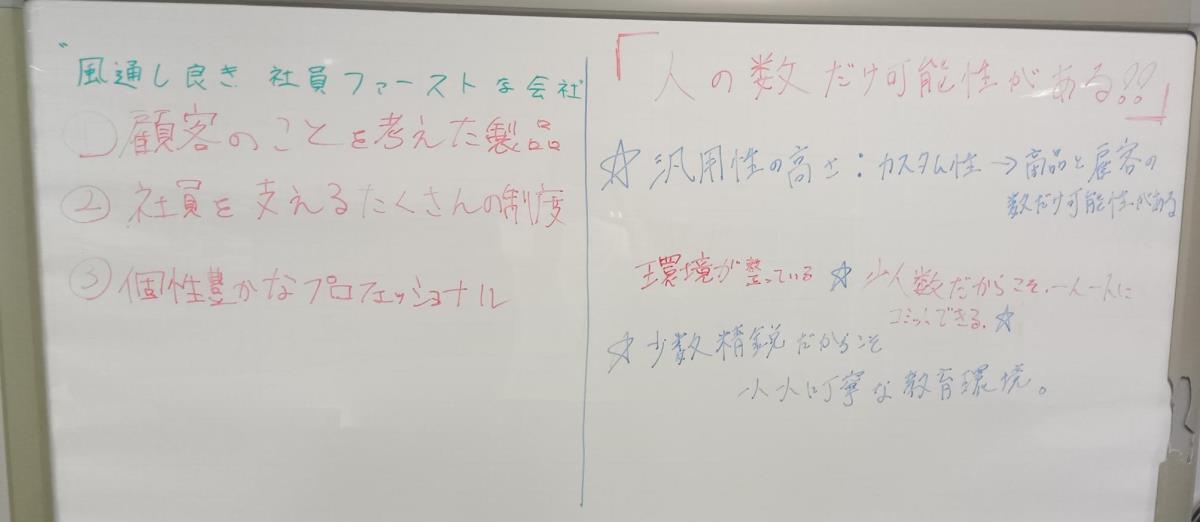 〝風通し良き 社員ファーストな会社
① 顧客のことを考えた製品
② 社員を支えるたくさんの制度
③ 個性豊かなプロフェッショナル
「人の数だけ可能性がある??」
☆ 汎用性の高さ：カスタム性→商品と顧客の
数だけ可能性がある
環境が整っている ☆ 少人数だからこそ、一人一人に
コミットできる。☆
☆ 少数精鋭だからこそ
一人一人に丁寧な教育環境。